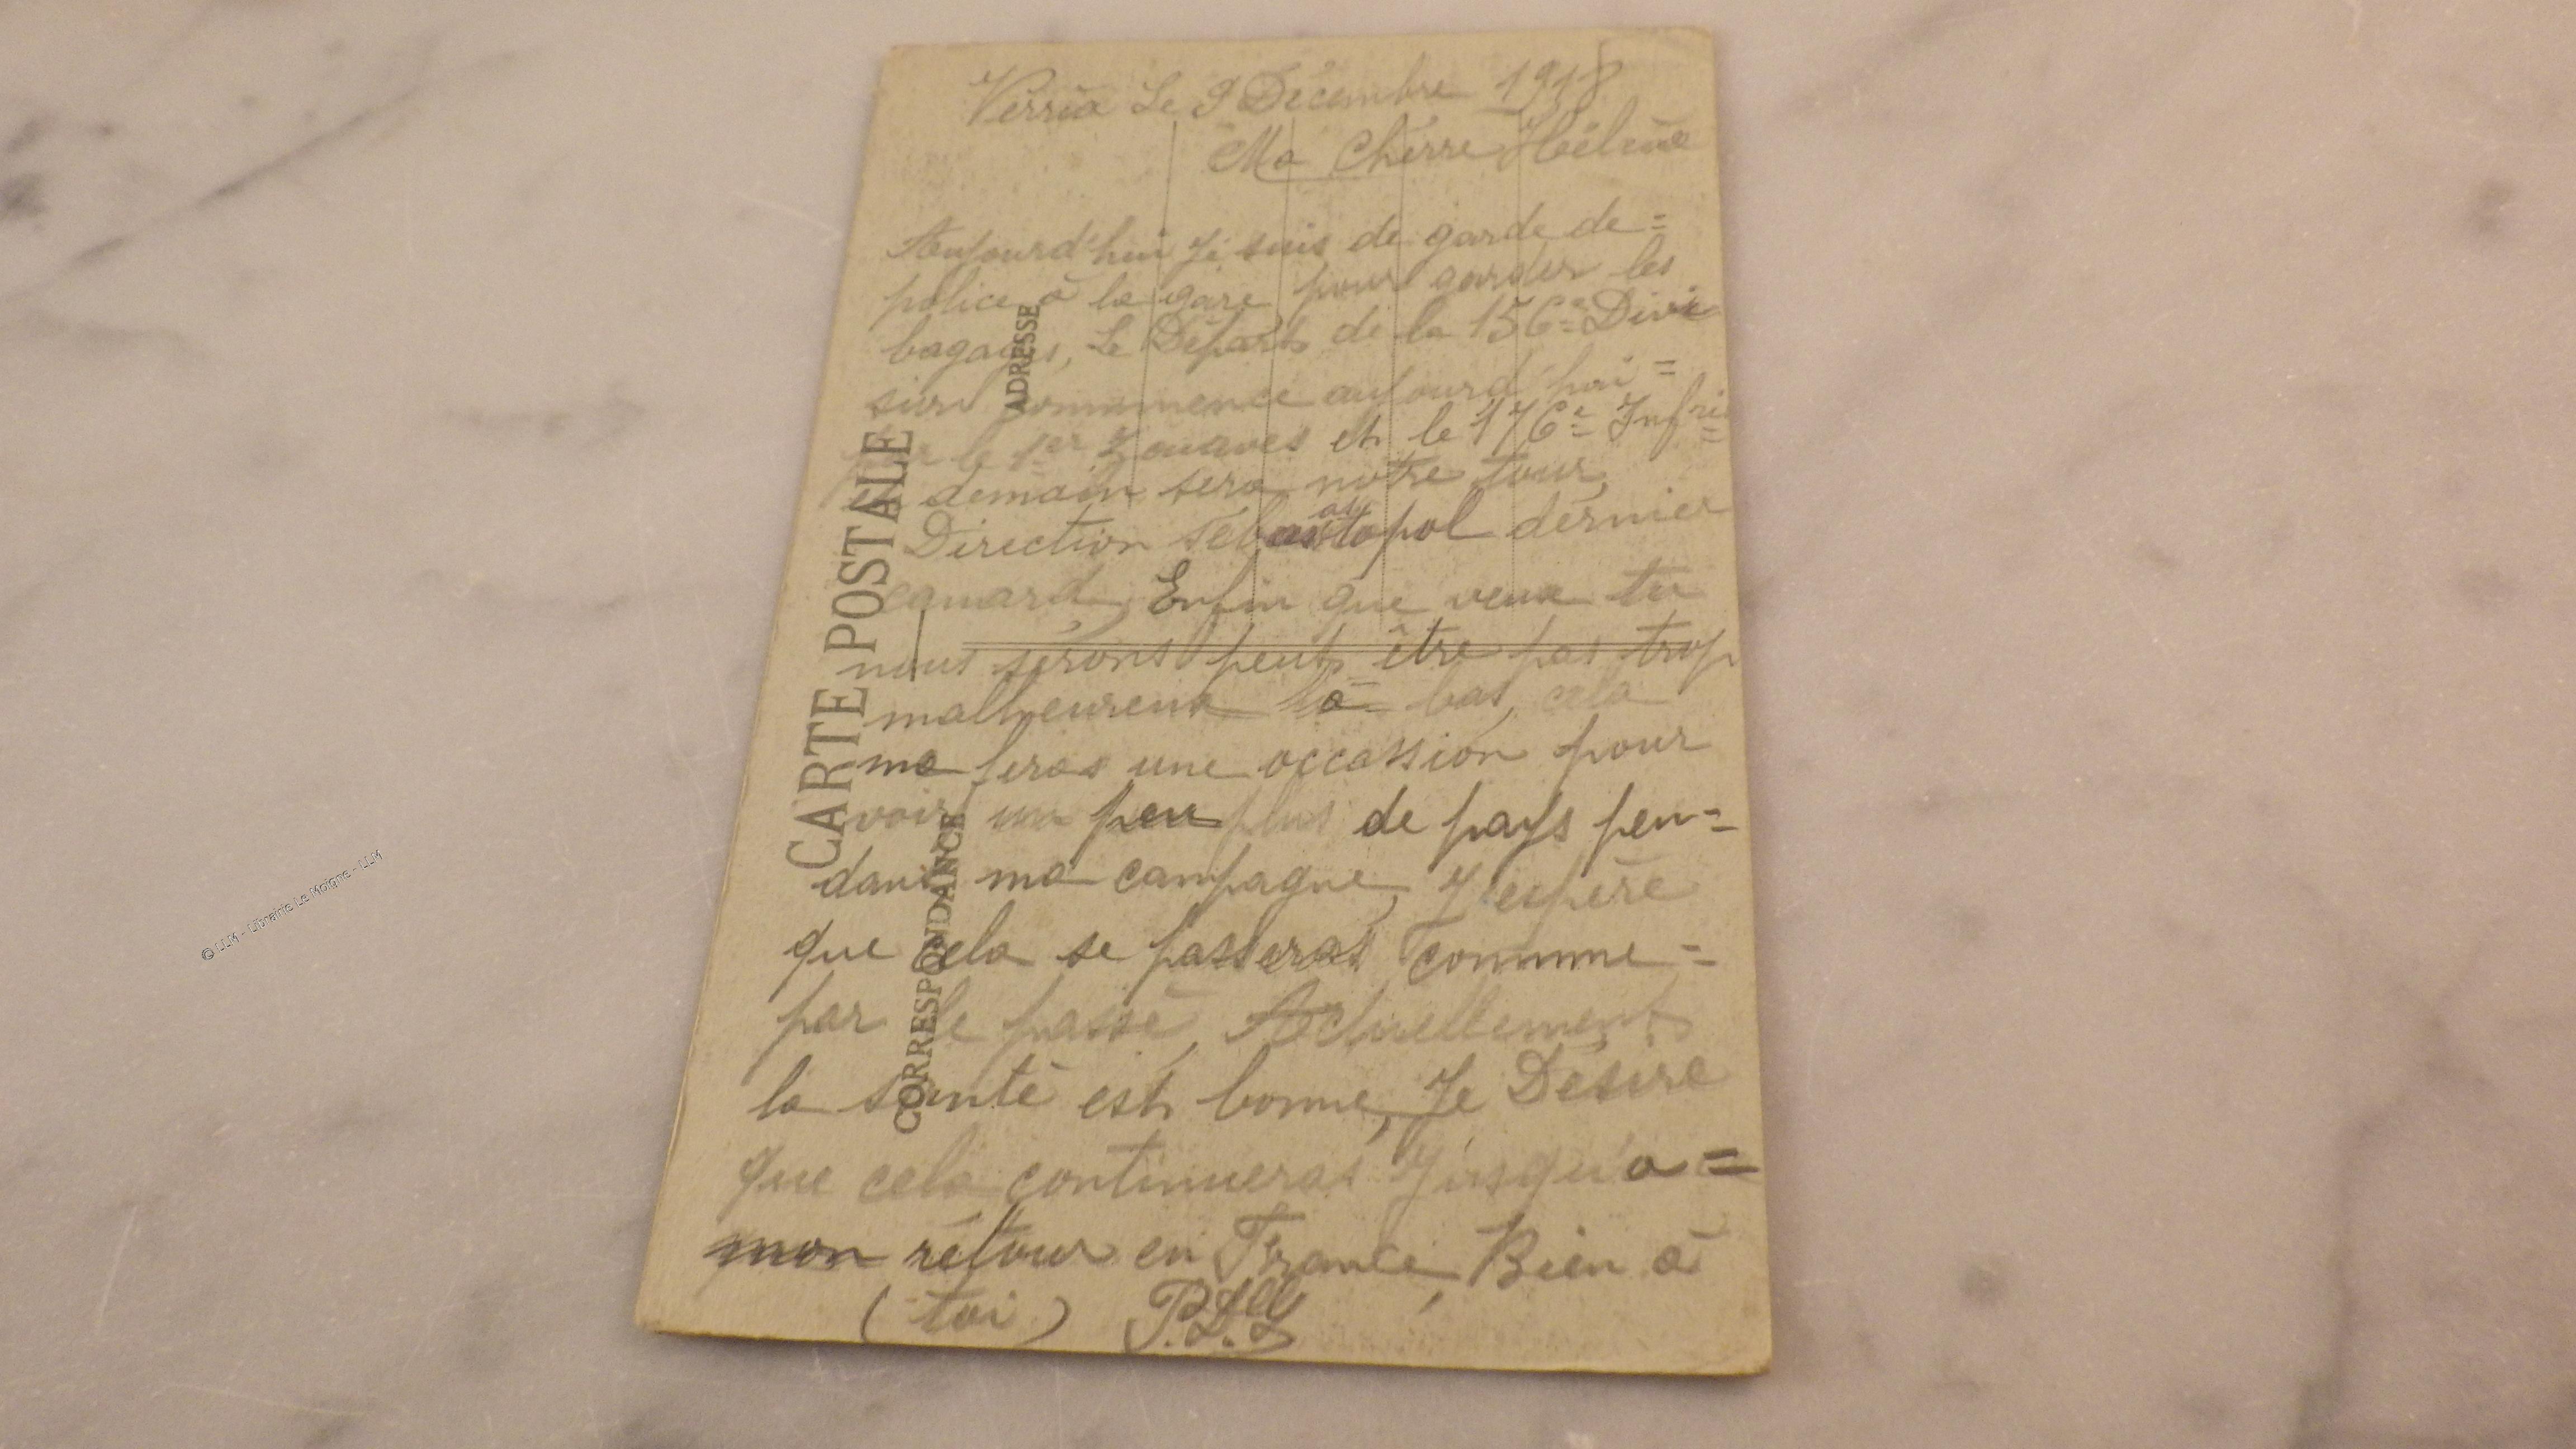 Verria Le 9 Décembre 1918
Ma Chèrre Hélène
Aujourd'hui Je suis de garde de=
police à la gare pour garder les
bagages, Le Départ de la 156e Divi
sion commence aujourd'hui =
le 1er Zouaves et le 176e Infrie
demain sera notre tour,
Direction Sébastopol dernier
canard, Enfin que veux tu
nous serons peut être pas trop
malheureux là-bas, cela
me feras une occassion pour
voir un peu plus de pays pen=
dant ma campagne, J'espère
que cela se passeras comme =
par le passé, Actuellement
la santé est bonne, Je Désire
que cela continueras Jusqu'a =
mon rétour en France, Bien à
(toi)
CARTE POSTALE
ADRESSE
CORRESPONDANCE
© LLM - Librairie Le Moigne - LLM